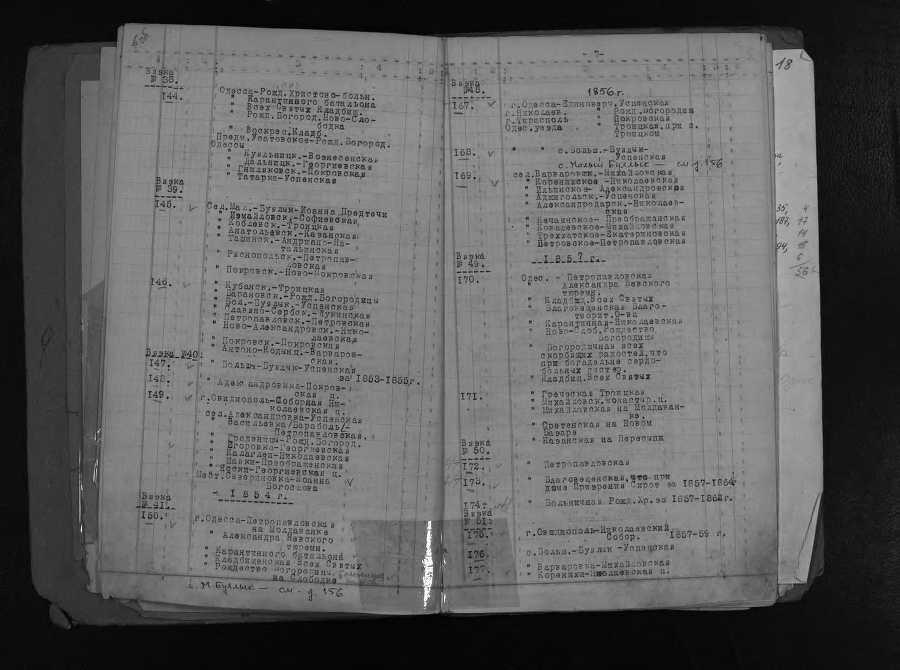 Вязка
№ 38.
144. Одесса-Рожд.Христово-больн.
" Карантинного батальона
" Всех Святых Кладбищ.
" Рожд.Богород.Ново-Сло-
бодка
" Воскрес.Кладб.
Предм.Усатовское-Рожд.Богород.
Одессы
" Куяльницк.-Вознесенская
" Дальницк.-Георгиевская
" Гниляковск.-Покровская
" Татарка-Успенская
Вязка
№ 39.
145. Сел.Мал.-Буялык-Иоанна Предтечи
" Измайловск.-Софиевская
" Коблевск.-Троицкая
" Анатольевск.-Казанская
" Ташинск.-Андриано-На-
тальинская
" Ряснопольск.-Петропав-
ловская
" Покровск.-Ново-Покровская
146. " Кубанск.-Троицкая
" Барановск.-Рожд.Богородицы
" Бол.-Буялык-Успенская
" Славяно-Сербск.-Лукинская
" Петропавловск.-Петровская
" Ново-Александровск.-Нико-
лаевская
" Покровск.-Покровская
" Антоно-Кодынц.-Варваров-
ская.
Вязка №40
147. " Больш.-Буялык-Успенская
за 1853-1855г.
148. " Александровка-Покров-
ская ц.
149. г.Овидиополь-Соборная Ни-
колаевская ц.
сел.Александровка-Успенская
" Васильевка/Бараболь/-
Петропавловская.
" Граденицы-Рожд.Богород.
" Егоровка-Георгиевская
" Калаглеи-Николаевская
" Маяки-Преображенская
" Яски-Георгиевская ц.
Мест.Севериновка-Иоанна
Богослова
- 1854 г.
Вязка
№ 41.
150. г.Одесса-Петропавловская
на Молдаванке
" Александра Невского
тюремн.
" Карантинного батальона
" Кладбищенская Всех Святых
" Рождество Богородицы.
на Слободке
с. М Буялык — см. д. 156
-7-
Вязка
№48.
1856г.
167. г.Одесса-Единоверч.Успенская
г.Николаев. " Рожд.Богородиц
г.Тирасполь " Покровская
Одес.уезда " Троицкая.при с.
Троицком
168. " " с.Больш.-Буялык-
Успенская
с. Малый Буялык — см д 156
169. сел.Варваровск.-Михайловская
" Коренихское -Николаевская
" Ильинское- Александровская
" Аджигольск.-Успенская
" Александродарск.-Николаев-
ская
" Нечаянское- Преображенская
" Ковалевское-Михайловская
" Треххатское-Екатериновская
" Петровское-Петропавловская
Вязка
№ 49.
1857г.
170. Одес. - Петропавловская
" Александра Невского
тюремн.
" Кладбищ.Всех Святых
" Благовещенская Благо-
творит.О-ва
" Карантинная-Николаевская
" Ново-Слоб.Рождество
Богородицы
" Богородичная всех
скорбящих радостей,что
при богадельне сердо-
больных сестер.
" Кладбищ.Всех Святых
171. " Греческая Троицкая
" Михайловск.монастыр.ц.
" Михайловская на Молдаван-
ке.
" Сретенская на Новом
Базаре
" Казанская на Пересыпи
Вязка
№ 50.
172. " Петропавловская
173. " Благовещенская,что при
доме Призрения Сирот за 1857-1864
174. " Больничная Рожд.Хр.за 1857-1862г.
Вязка
№ 51.
175. г.Овидиополь-Николаевский
Собор. 1857-59 г.
176. с.Больш.-Буялык-Успенская
177. " Варваровка-Михайловская
" Корениха-Николаевская ц.
18